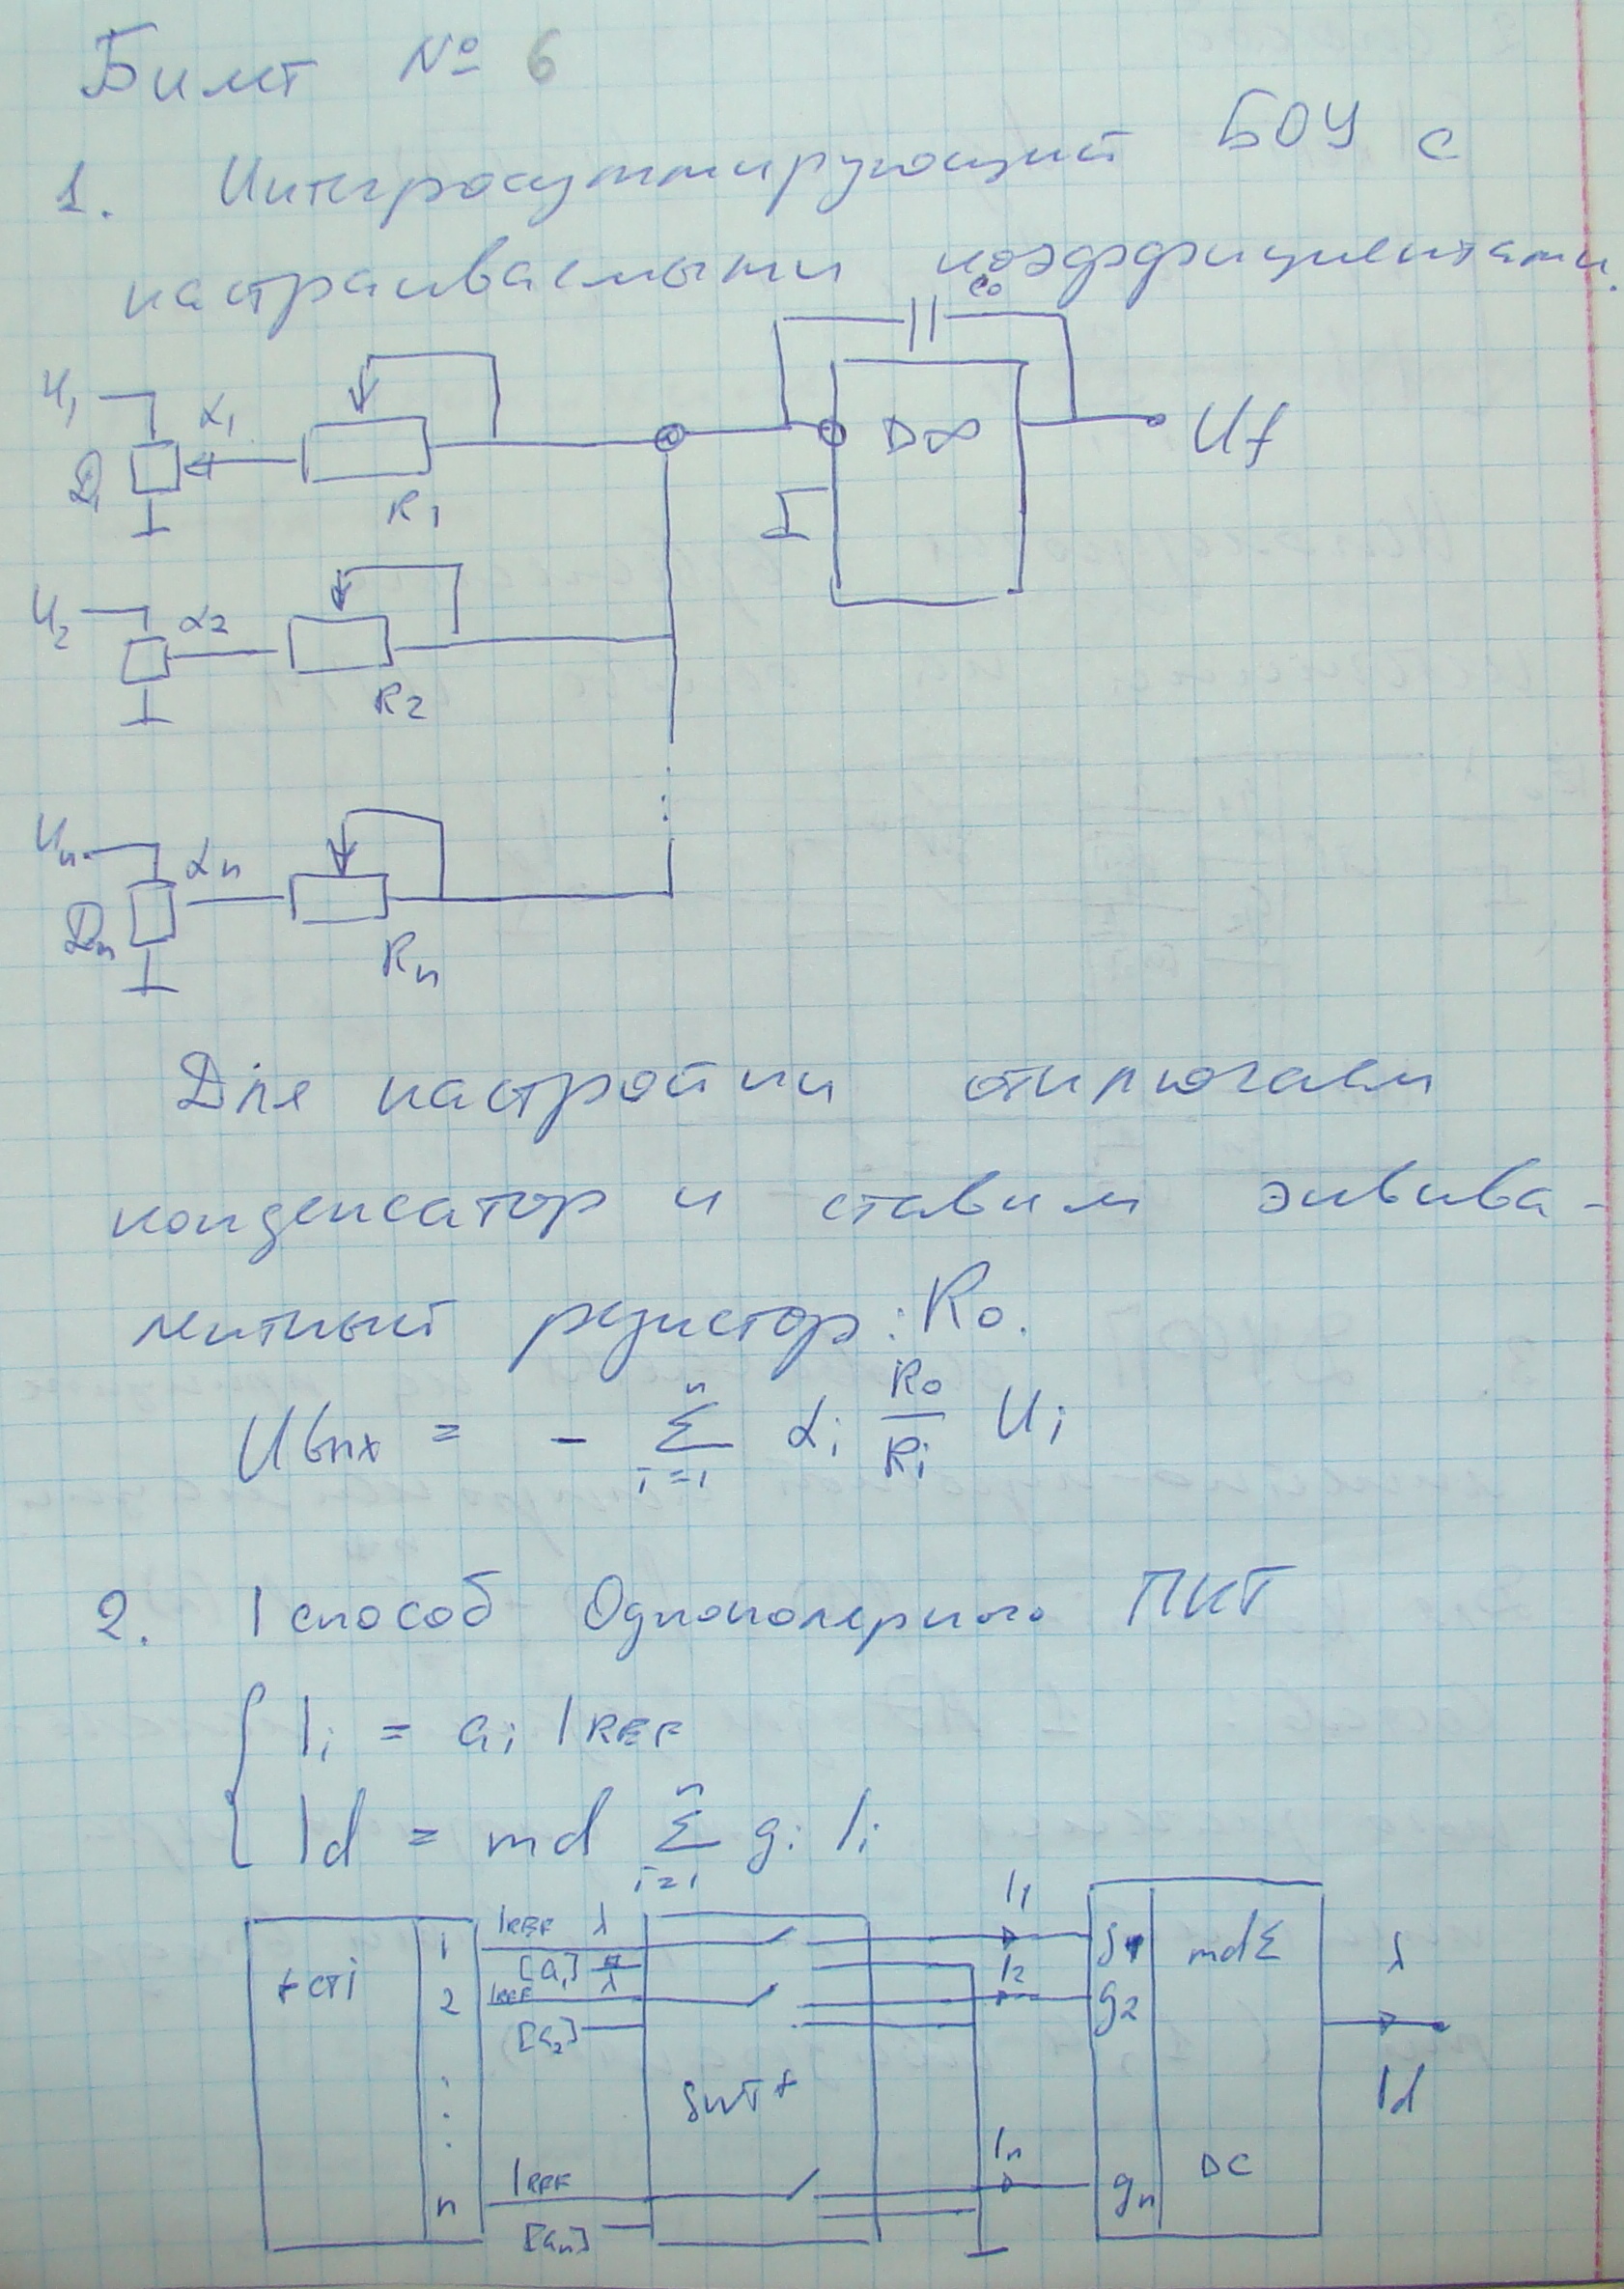 Билет № 6
1. Интегросуммирующий БОУ с
настраиваемыми коэффициентами.
C₀
U₁ α₁ D∞ Uf
D₁
R₁
U₂ α₂
R₂
Uₙ αₙ
Dₙ
Rₙ
Для настройки отключаем
конденсатор и ставим эквива-
лентный резистор: R₀.
Uвых = - Σ (i=1, n) αᵢ R₀/Rᵢ Uᵢ
2. I способ Однополярного ПКТ
Iᵢ = aᵢ IREF
Id = md Σ (i=1, n) gᵢ Iᵢ
1 IREF λ I₁ g₁ mdΣ λ
[a₁] λ
2 IREF I₂ g₂
[a₂]
Id
n IREF Iₙ gₙ DC
[aₙ]